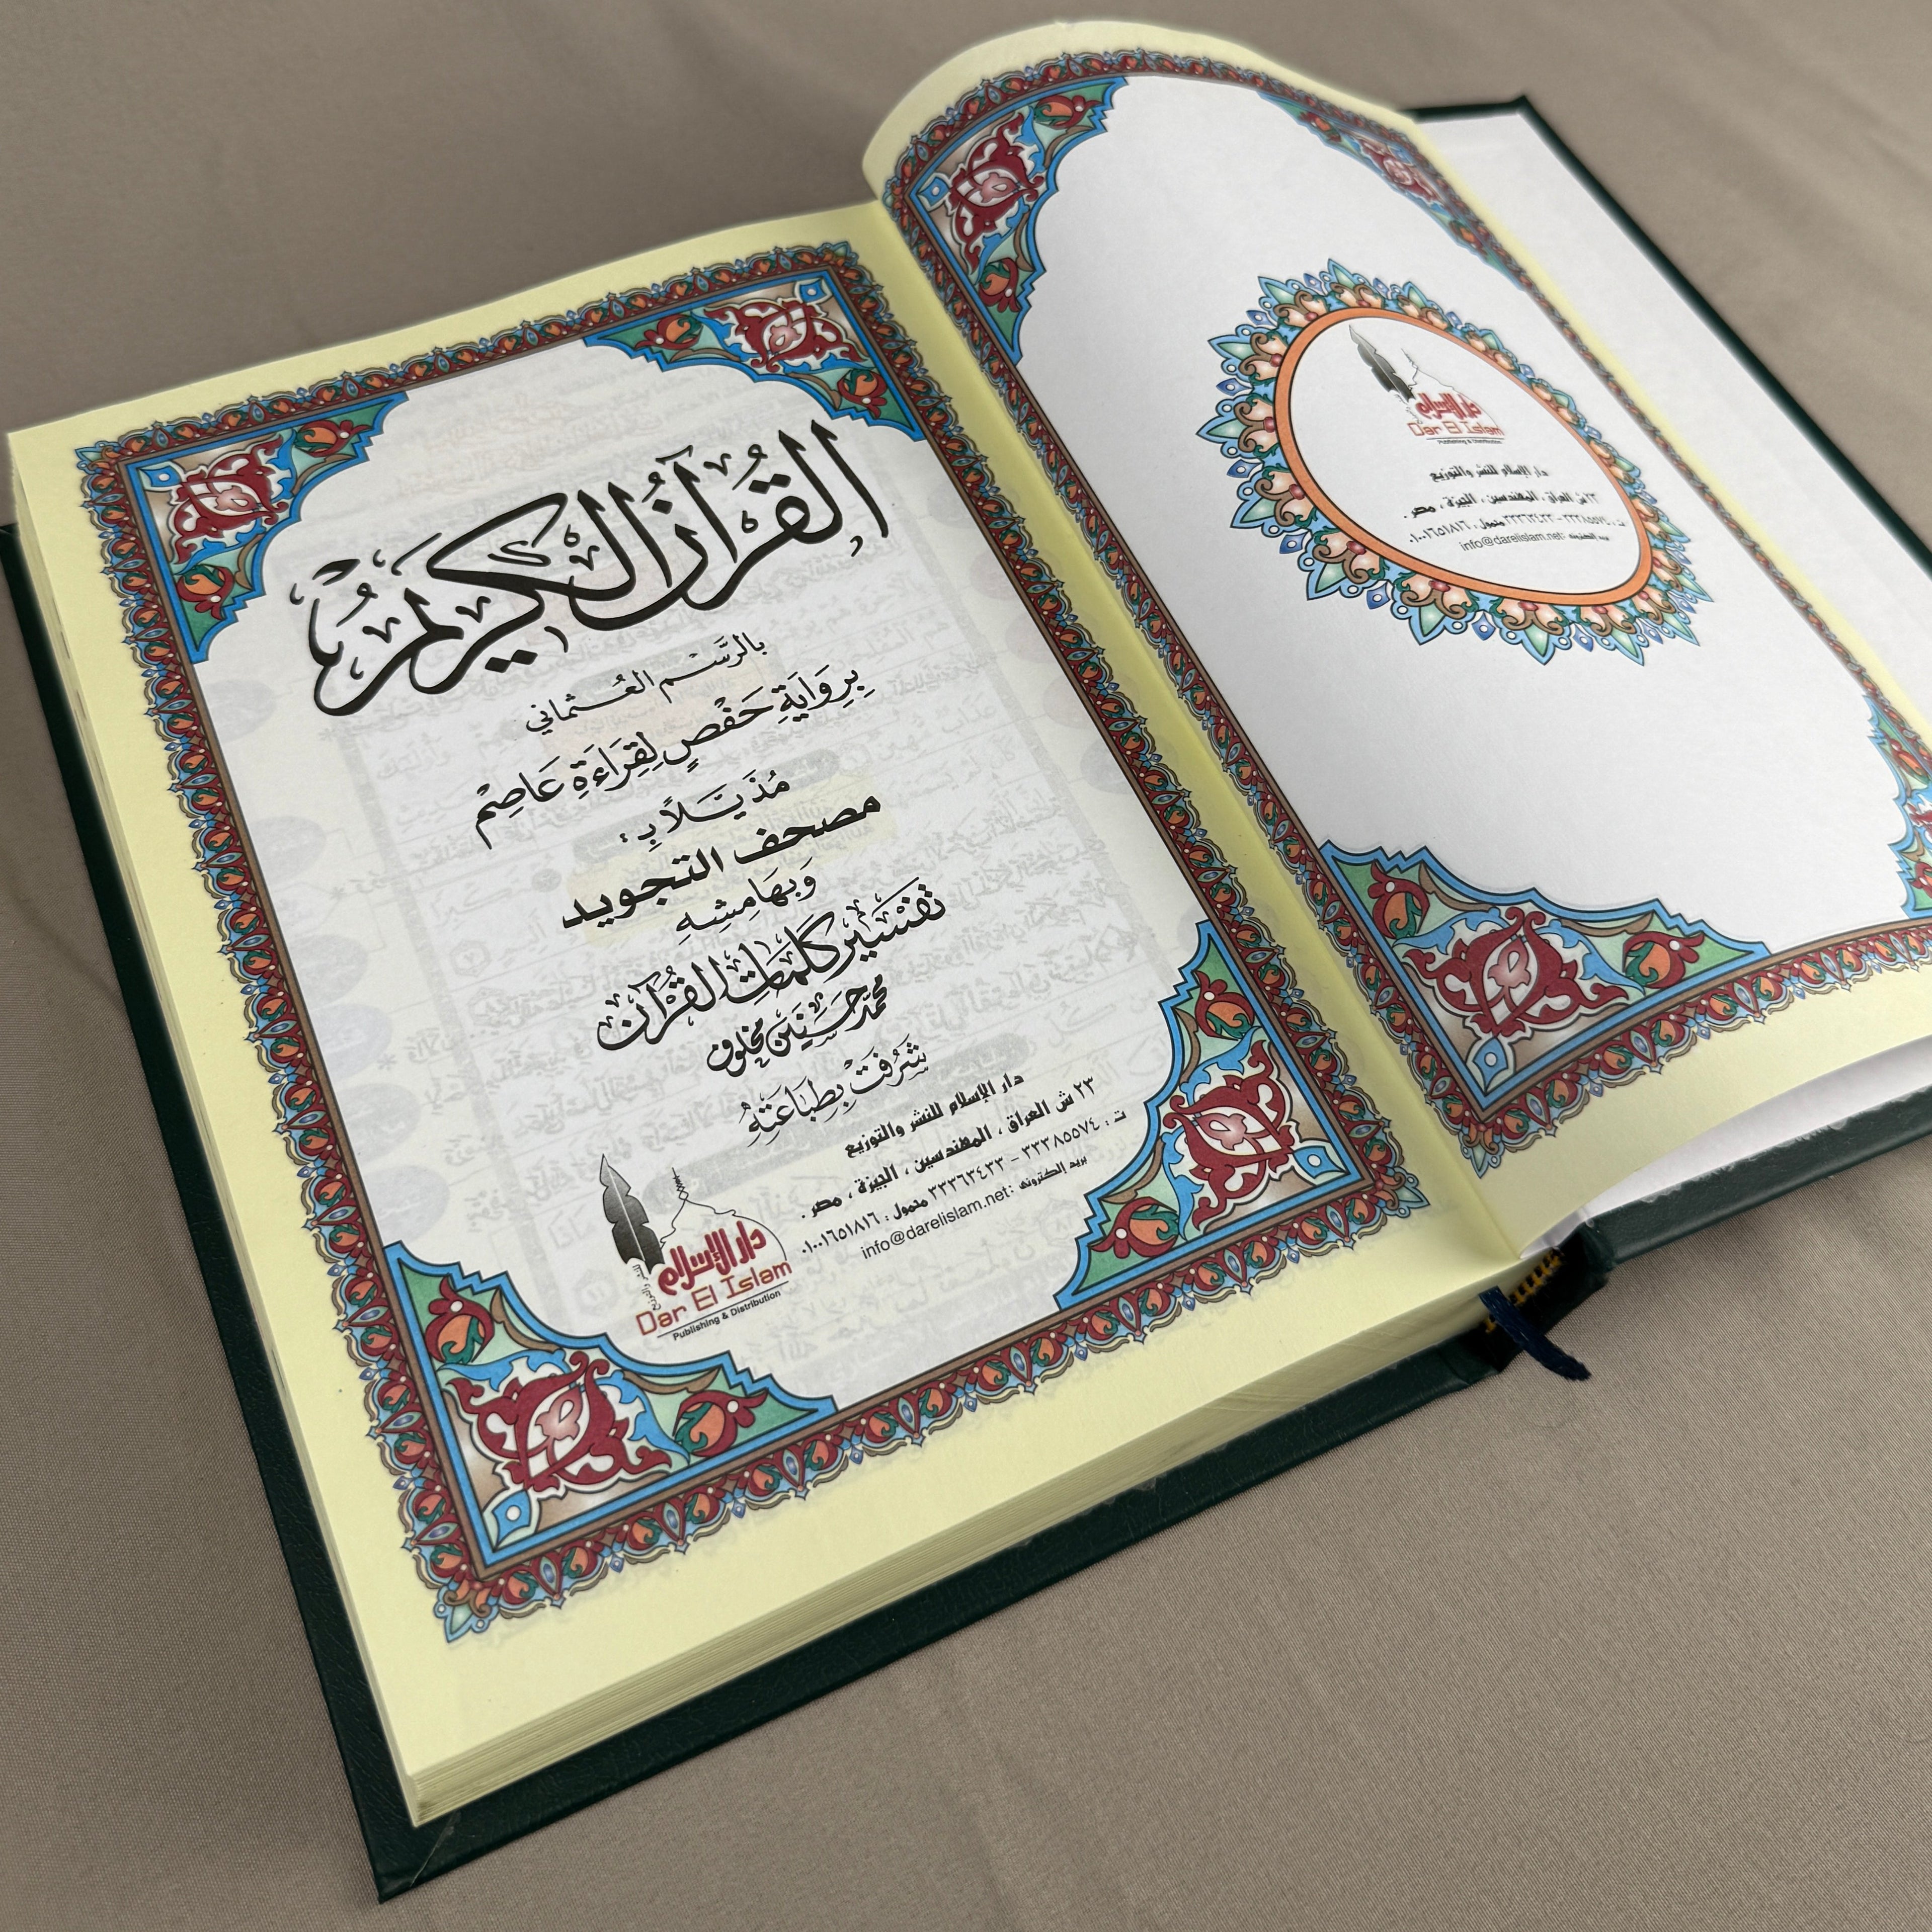 القُرآنُ الكَرِيمُ
بالرَّسْمِ العُثماني
بِرِوَايَةِ حَفْصٍ لِقِرَاءَةِ عَاصِم
مُذَيَّلاً بِ:
مصحف التجويد
وَبهَامِشِهِ
تَفسِير كَلمَاتِ القُرآن
محمَّد حسَنين مخلوف
شَرُفَتْ بِطِبَاعَتِهِ
دار الإسلام للنشر والتوزيع
٢٣ ش العراق ، المهندسين ، الجيزة ، مصر .
ت : ٣٣٣٨٥٥٧٤ – ٣٣٣٦٣٤٣٣ محمول : ٠١٠٠١٦٥١٨١٦
بريد إلكترونى : info@darelislam.net
دار الإسلام
للنشر والتوزيع
Dar El Islam
Publishing & Distribution
دار الإسلام
Dar El Islam
Publishing & Distribution
دار الإسلام للنشر والتوزيع
٢٣ ش العراق ، المهندسين ، الجيزة ، مصر .
ت : ٣٣٣٨٥٥٧٤ – ٣٣٣٦٣٤٣٣ محمول : ٠١٠٠١٦٥١٨١٦
بريد إلكترونى : info@darelislam.net